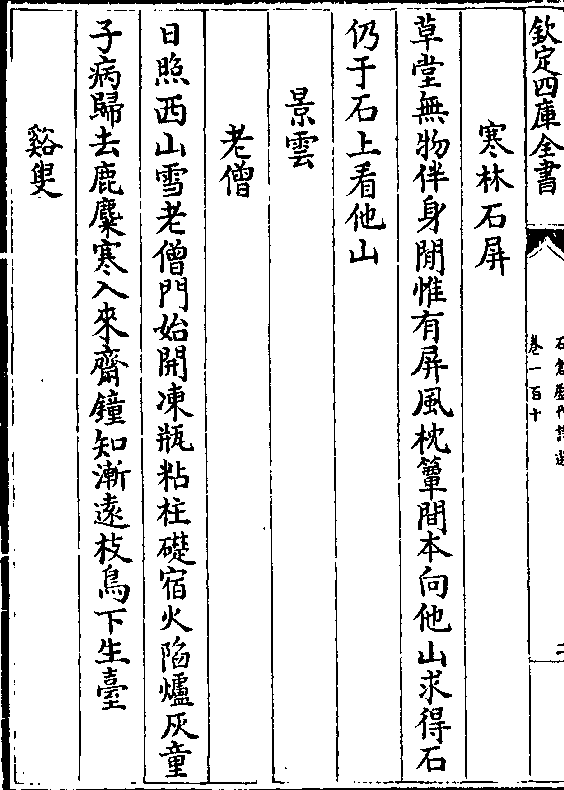 欽定四庫全書
石倉歷代詩選
卷一百十
二
寒林石屏
草堂無物伴身閒惟有屏風枕簟間本向他山求得石
仍于石上看他山
景雲
老僧
日照西山雪老僧門始開凍瓶粘柱礎宿火陷爐灰童
子病歸去鹿麋寒入來齋鐘知漸遠枝鳥下生臺
谿叟